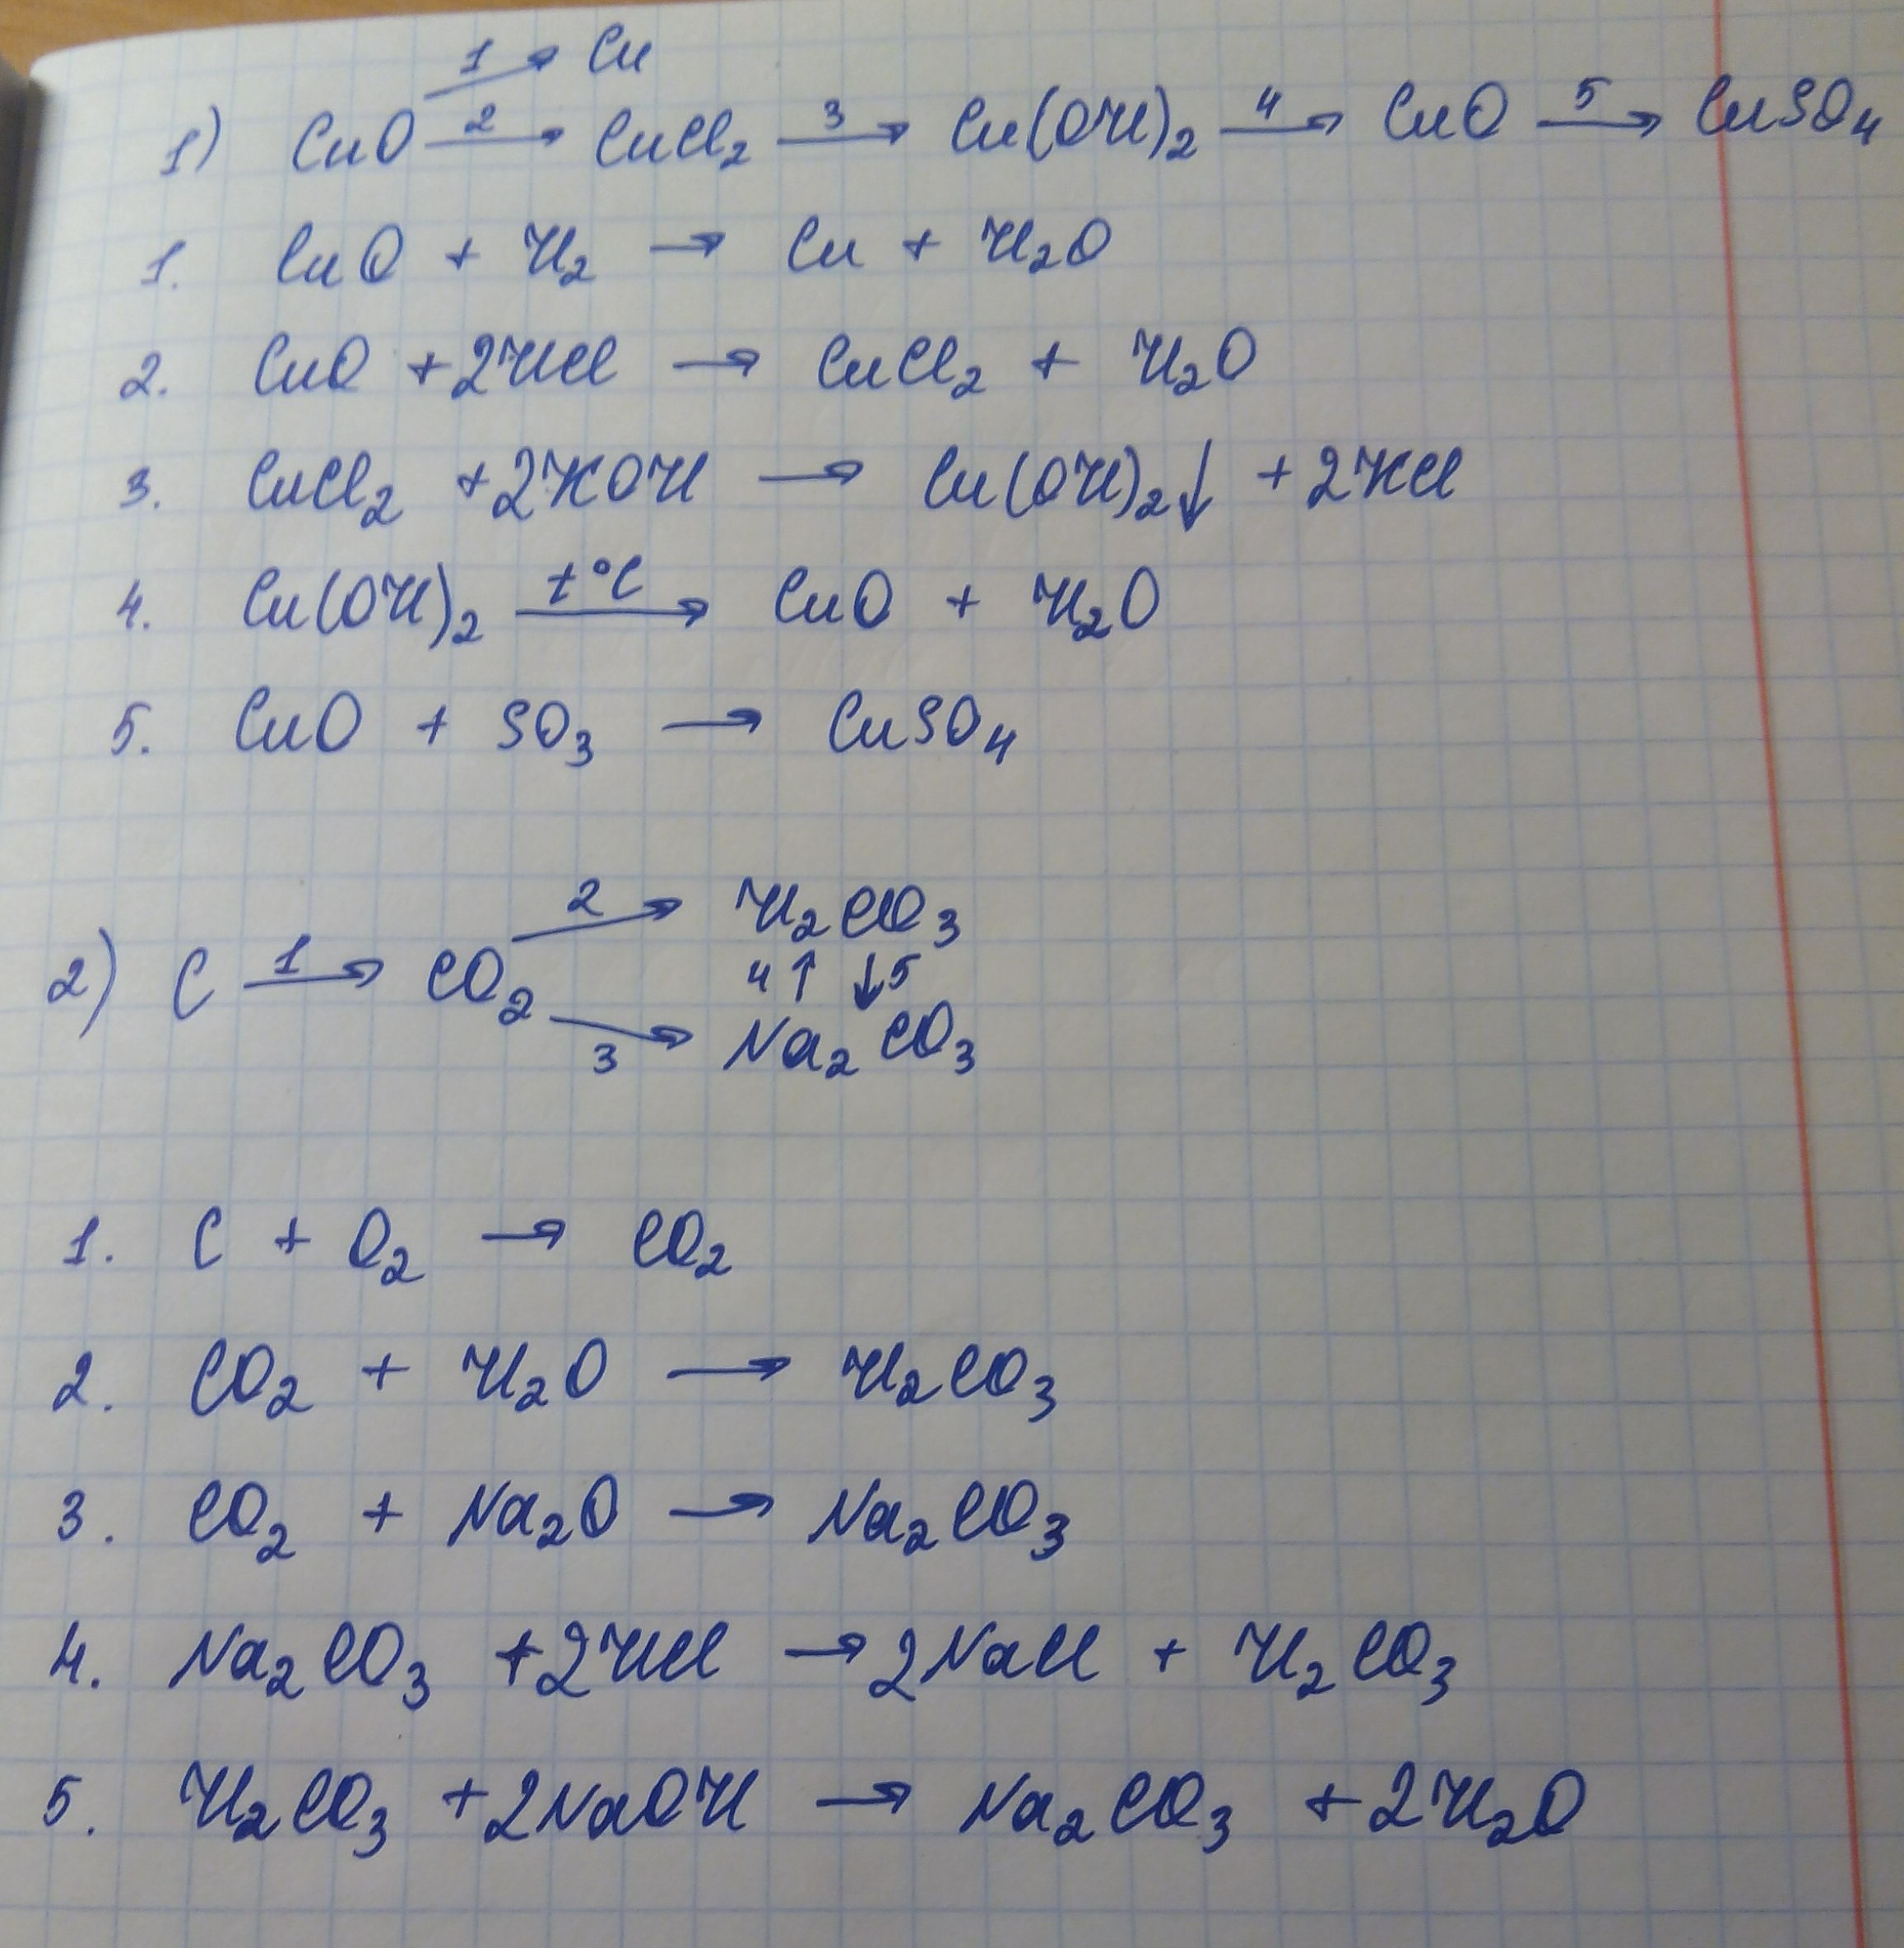 1) CuO 1→ Cu
2→ CuCl₂ 3→ Cu(OH)₂ 4→ CuO 5→ CuSO₄
1. CuO + H₂ → Cu + H₂O
2. CuO + 2HCl → CuCl₂ + H₂O
3. CuCl₂ + 2KOH → Cu(OH)₂↓ + 2KCl
4. Cu(OH)₂ t°C→ CuO + H₂O
5. CuO + SO₃ → CuSO₄
2) C 1→ CO₂ 2→ H₂CO₃
4↑ ↓5
3→ Na₂CO₃
1. C + O₂ → CO₂
2. CO₂ + H₂O → H₂CO₃
3. CO₂ + Na₂O → Na₂CO₃
4. Na₂CO₃ + 2HCl → 2NaCl + H₂CO₃
5. H₂CO₃ + 2NaOH → Na₂CO₃ + 2H₂O